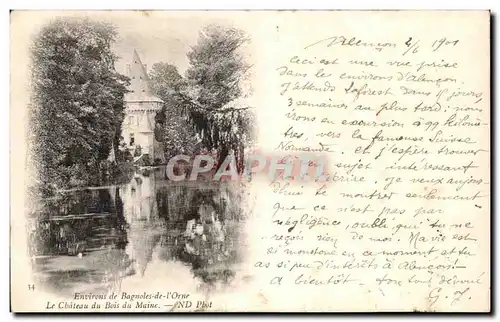 Alençon 2/6 1901
Ceci est une vue prise
dans les environs d'Alençon.
J'attends Laforest dans 15 jours
3 semaines au plus tard: nous
irons en excursion à 99 kilomè-
tres, vers la fameuse Suisse
Normande. et j'espère trouver
sujet intéressant
Je veux aujour-
d'hui te montrer seulement
que ce n'est pas par
négligence, oubli que tu ne
reçois rien de moi. Ma vie est
si monotone en ce moment et tu
as si peu d'intérêts à Alençon
à bientôt. Ton tout dévoué
CPARAMA.COM
14
Environs de Bagnoles-de-l'Orne
Le Château du Bois du Maine. — ND Phot